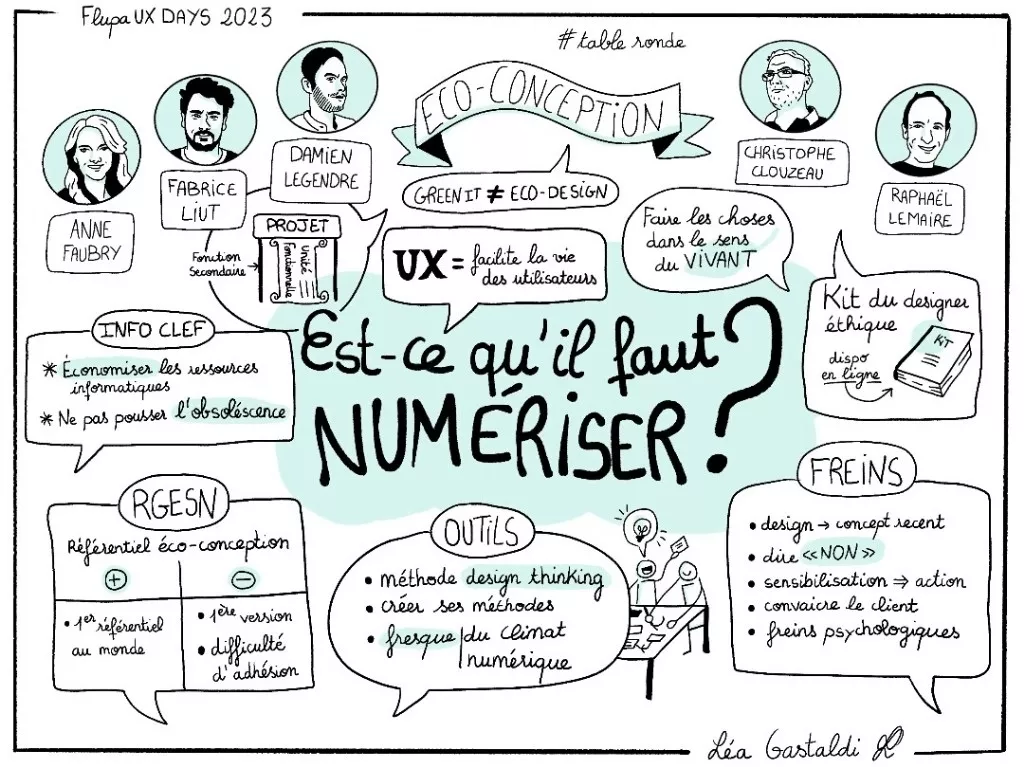 Flupa UX DAYS 2023
# table ronde
ECO-CONCEPTION
ANNE
FAUBRY
FABRICE
LIUT
DAMIEN
LEGENDRE
CHRISTOPHE
CLOUZEAU
RAPHAËL
LEMAIRE
GREEN IT ≠ ECO-DESIGN
PROJET
Fonction
Secondaire
Unité
Fonctionnelle
UX = facilite la vie
des utilisateurs
Faire les choses
dans le sens
du VIVANT
Kit du designer
éthique
dispo
en ligne
KIT
Est-ce qu'il faut
NUMÉRISER ?
INFO CLEF
* Économiser les ressources
informatiques
* Ne pas pousser l'obsoléscence
RGESN
Référentiel éco-conception
+
• 1er référentiel
au monde
−
• 1ère version
• difficulté
d'adhésion
OUTILS
• méthode design thinking
• créer ses méthodes
• fresque | du climat
numérique
FREINS
• design → concept recent
• dire «NON»
• sensibilisation ⇒ action
• convaicre le client
• freins psychologiques
Léa Gastaldi